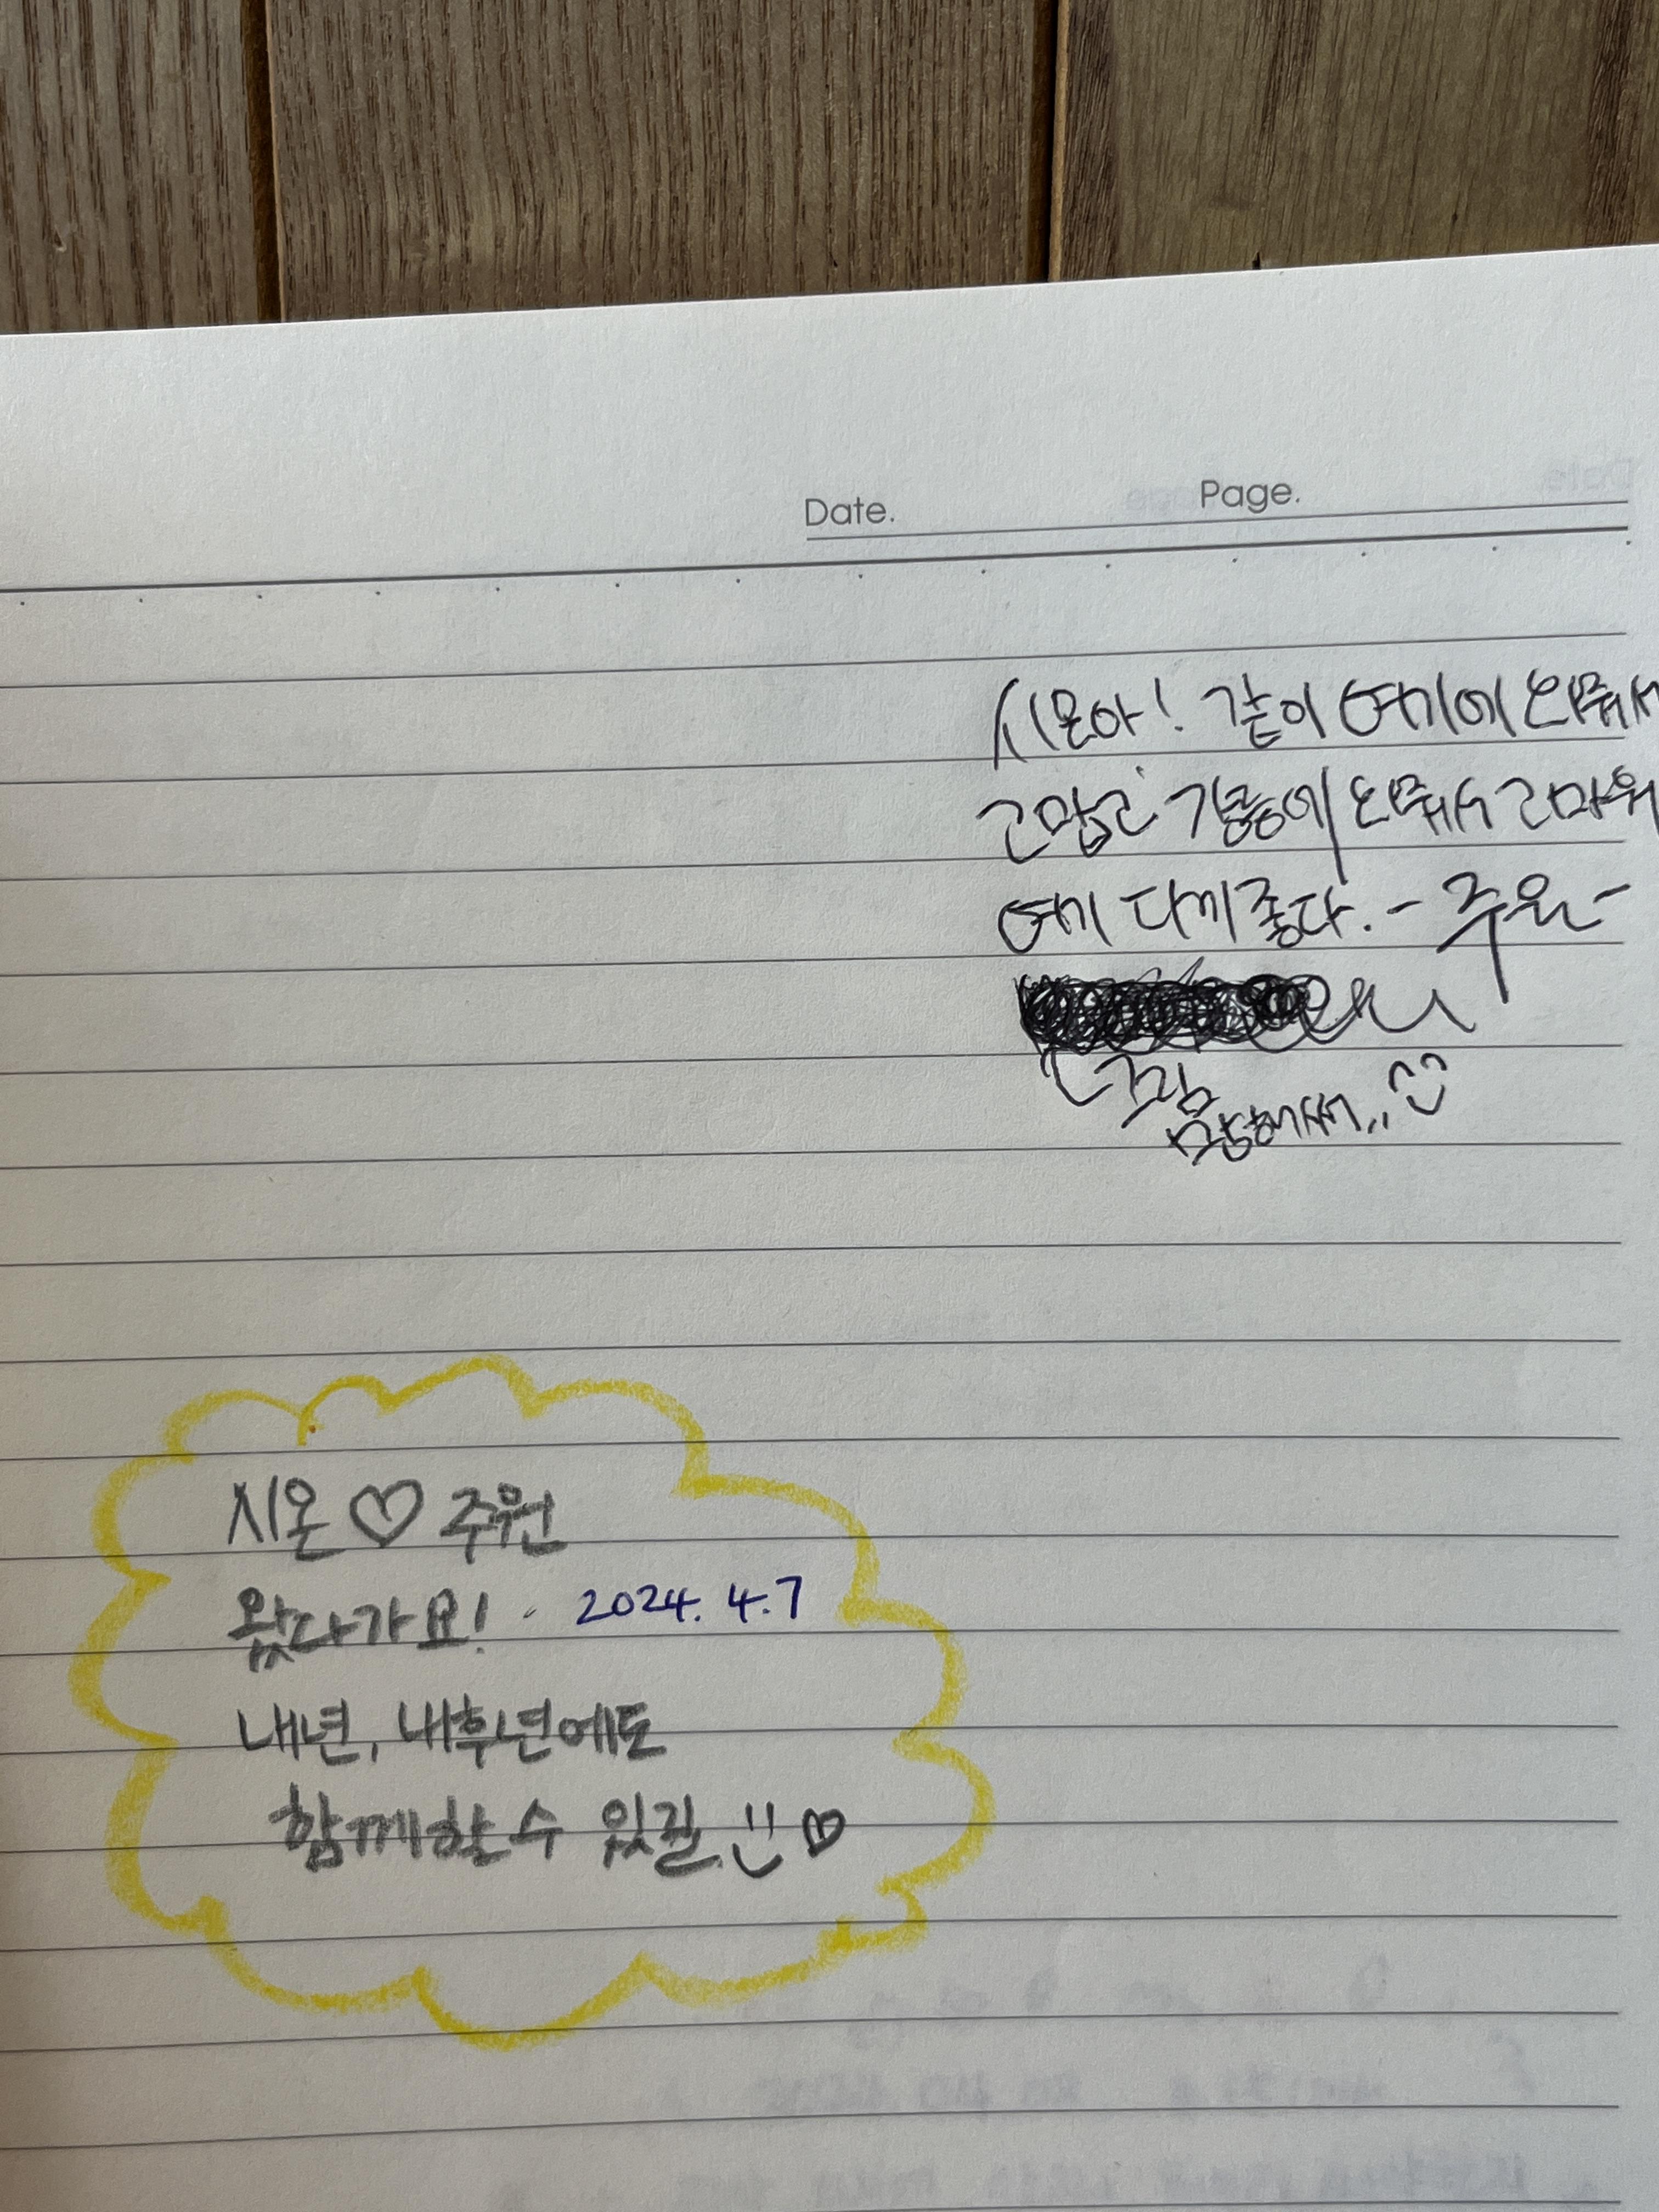 Date. Page.
시온아! 같이 여기에 와줘서
고맙고 기룡이 와줘서 고마워
여기 되게 좋다. - 주원 -
그림
망해써..
시온 ♡ 주원
왔다가요! 2024. 4. 7
내년, 내후년에도
함께할 수 있길 !! ♡